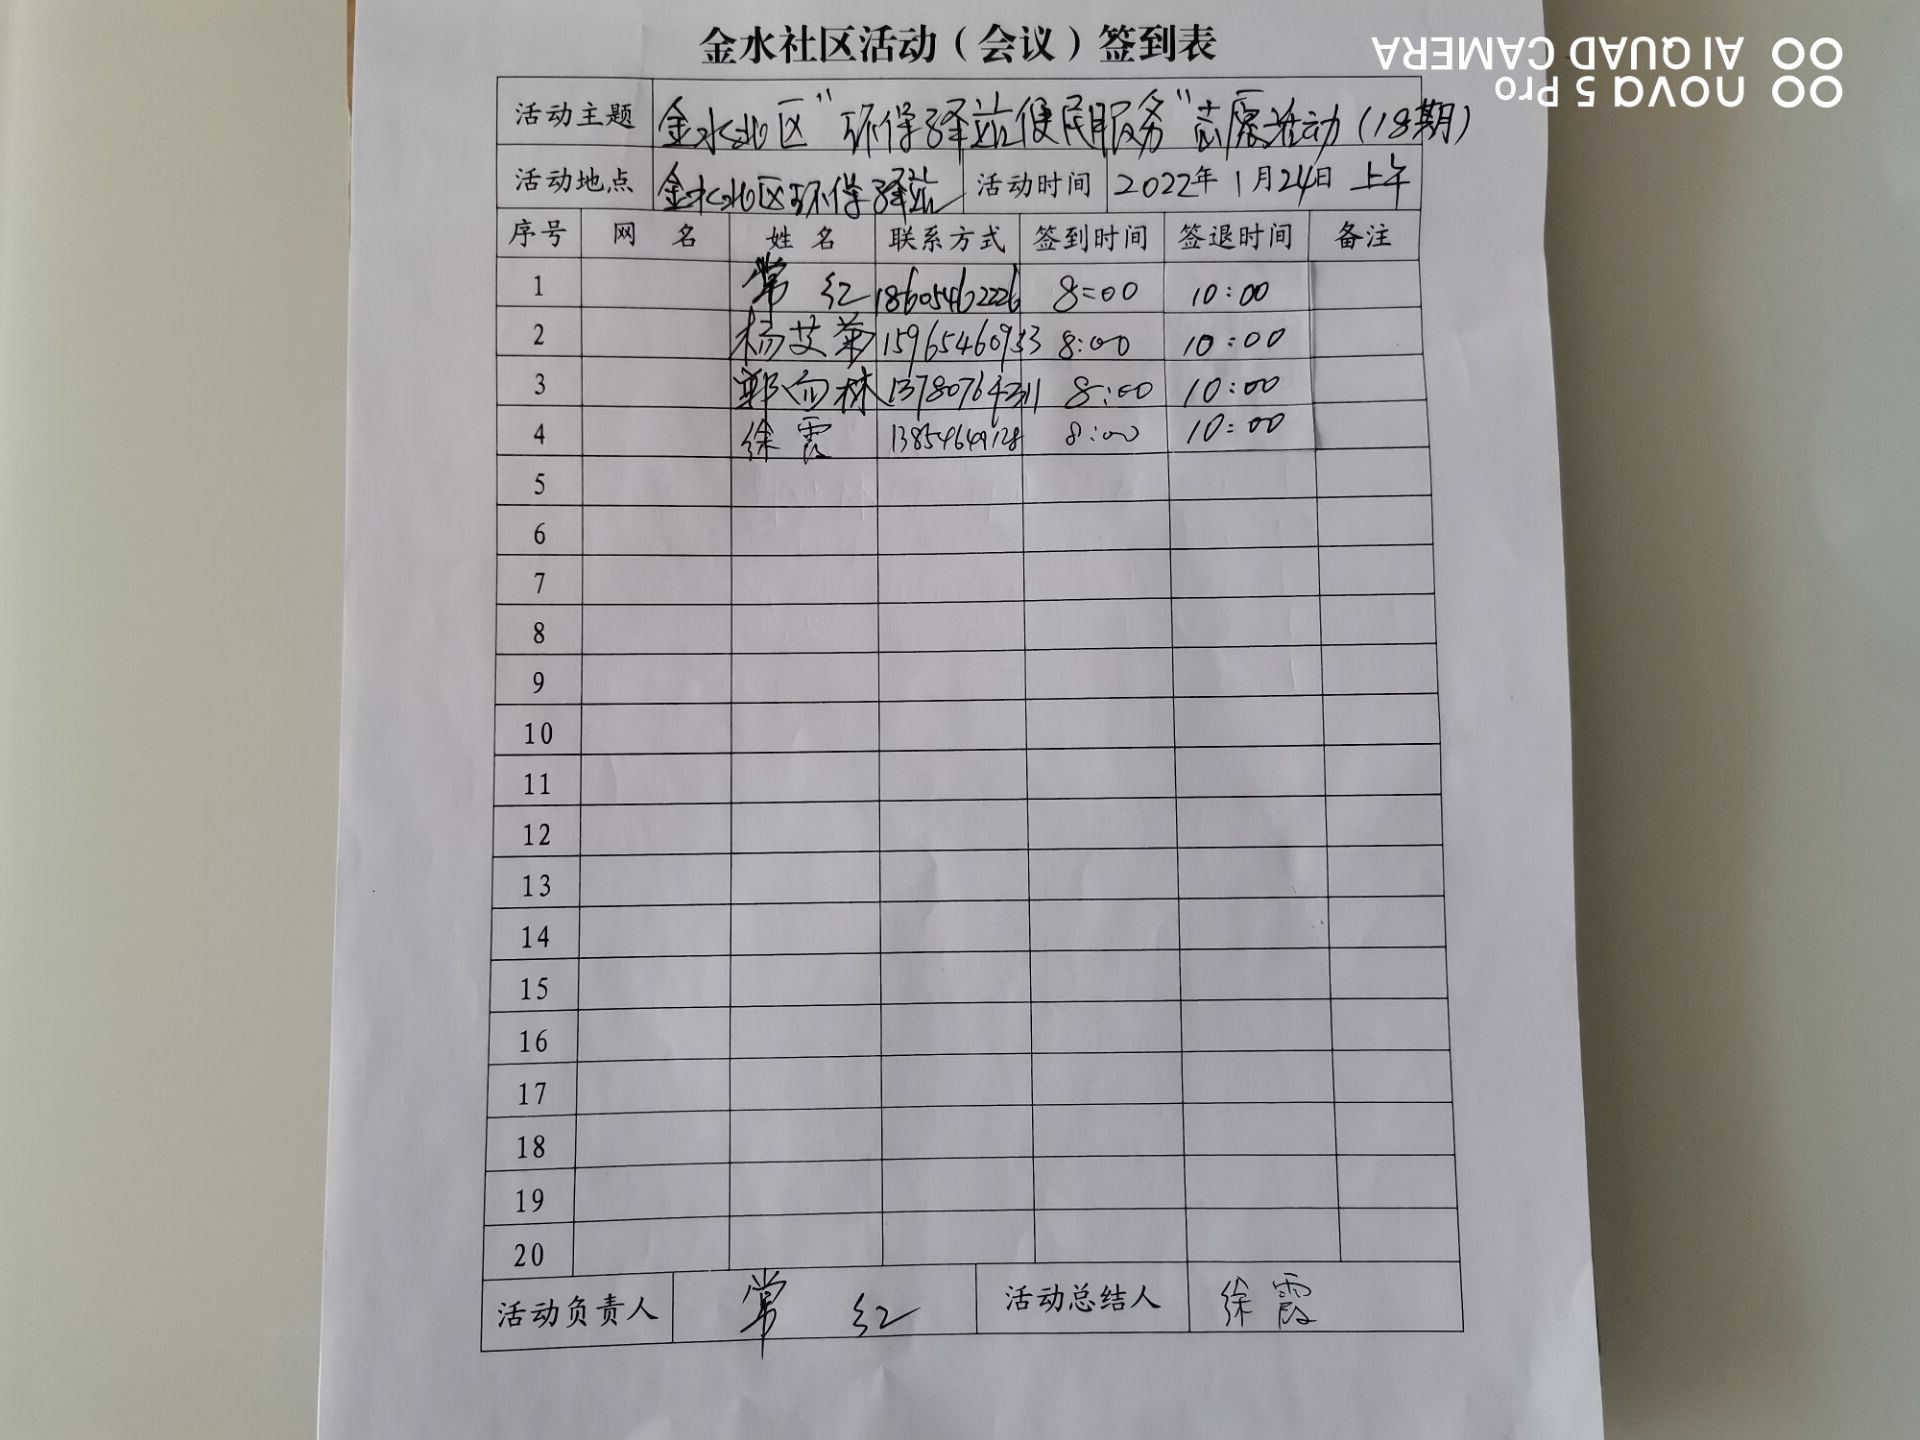 金水社区活动（会议）签到表
AI QUAD CAMERA
nova 5 Pro
活动主题 金水北区"环保驿站便民服务"志愿活动(18期)
活动地点 金水北区环保驿站 活动时间 2022年1月24日 上午
序号 网 名 姓 名 联系方式 签到时间 签退时间 备注
1 常 红 18605462226 8:00 10:00
2 杨艾华 15965460933 8:00 10:00
3 郭向林 13780764311 8:00 10:00
4 徐霞 13854649128 8:00 10:00
5
6
7
8
9
10
11
12
13
14
15
16
17
18
19
20
活动负责人 常 红 活动总结人 徐霞